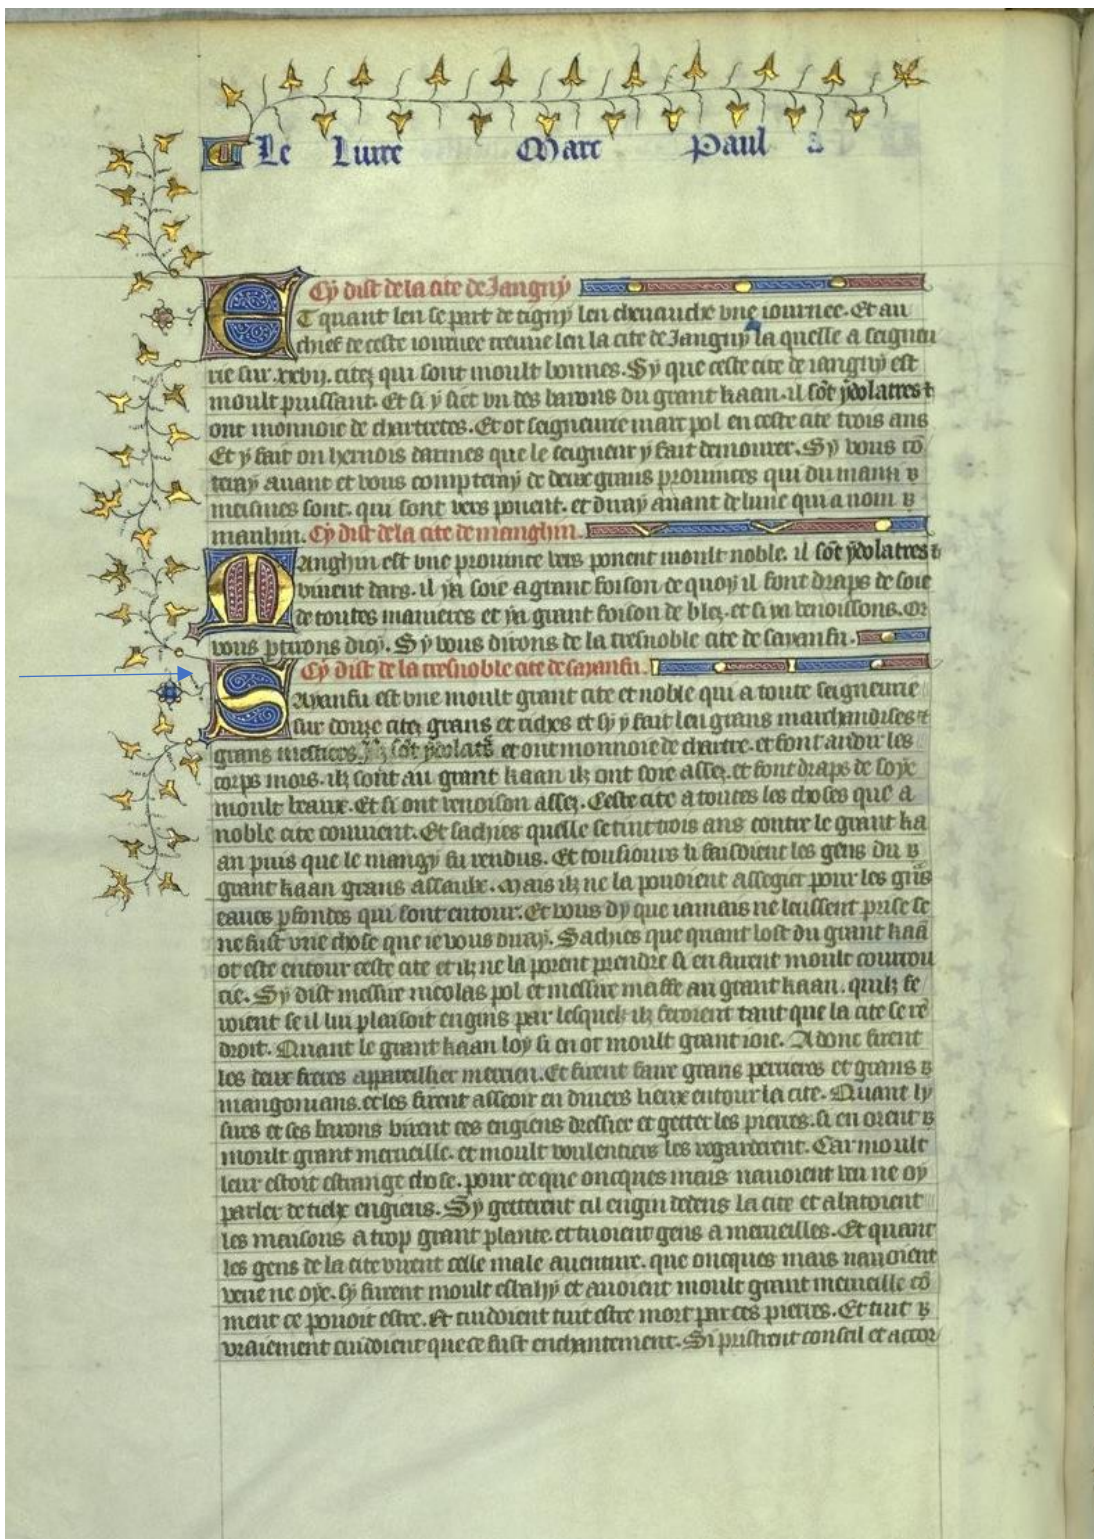 Le Liure Marc Paul
Cy dist de la cite de Jangny
ET quant len se part de tigny len cheuauche vne iournee. Et au
chief de ceste iournee treuue len la cite de Jangny la quelle a seigneu
rie sur .xxvij. citez qui sont moult bonnes. Sy que ceste cite de iangny est
moult puissant. Et si y siet vn des barons du grant kaan. il sõt ydolatres &
ont monnoie de chartretes. Et ot seigneurie marc pol en ceste cite trois ans
Et y fait on hernois darmes que le seigneur y fait demourer. Sy vous cõ
teray auant et vous compteray de deux grans prouinces qui du mangy
meismes sont. qui sont vers ponent. et diray auant de lune qui a nom
manhin. Cy dist de la cite de manghin.
Manghin est vne prouince vers ponent moult noble. il sõt ydolatres &
viuent dars. il ya soie a grant foison de quoy il font draps de soie
de toutes manieres et ya grant foison de blez. et si ya venoissons. Or
vous ptirons dicy. Sy vous dirons de la tresnoble cite de sayanfu.
Cy dist de la tresnoble cite de sayanfu.
Sayanfu est vne moult grant cite et noble qui a toute seigneurie
sur douze citez grans et riches et sy y fait len grans marchandises &
grans mestiers. ilz sõt ydolatrẽ et ont monnoie de chartre. et font ardoir les
corps mors. ilz sont au grant kaan ilz ont soie assez. et font draps de soye
moult beaux. Et si ont venoison assez. Ceste cite a toutes les choses que a
noble cite conuient. Et sachies quelle se tint trois ans contre le grant ka
an puis que le mangy fu rendus. Et tousiours li faisoient les gens du
grant kaan grans assaulx. Mais ilz ne la pouoient assegier pour les grãs
eaues pfondes qui sont entour. Et vous dy que iamais ne leussent prise se
ne fust vne chose que ie vous diray. Sachies que quant lost du grant kaã
ot este entour ceste cite et ilz ne la porent prendre si en furent moult courrou
cie. Sy dist messire nicolas pol et messire maffe au grant kaan. quilz fe
roient se il lui plaisoit engins par lesquelz ilz feroient tant que la cite se rẽ
droit. Quant le grant kaan loy si en ot moult grant ioie. Adonc firent
les deux freres appareillier merrien. Et firent faire grans perrieres et grans
mangonians. et les firent asseoir en diuers lieux entour la cite. Quant ly
sires et ses barons virent ces engiens dressier et getter les pierres. si en orent
moult grant merueille. et moult voulentiers les regarderent. Car moult
leur estoit estrange chose. pour ce que oncques mais nauoient veu ne oy
parler de tielx engiens. Sy getterent cil engin dedens la cite et abatoient
les maisons a trop grant plante. et tuoient gens a merueilles. Et quant
les gens de la cite virent celle male auenture. que oncques mais nauoient
veue ne oye. sy furent moult esbahy et auoient moult grant merueille cõ
ment ce pouoit estre. Et cuidoient tuit estre mort par ces pierres. Et tuit
vraiement cuidoient que ce fust enchantement. Si pristrent conseil et accor